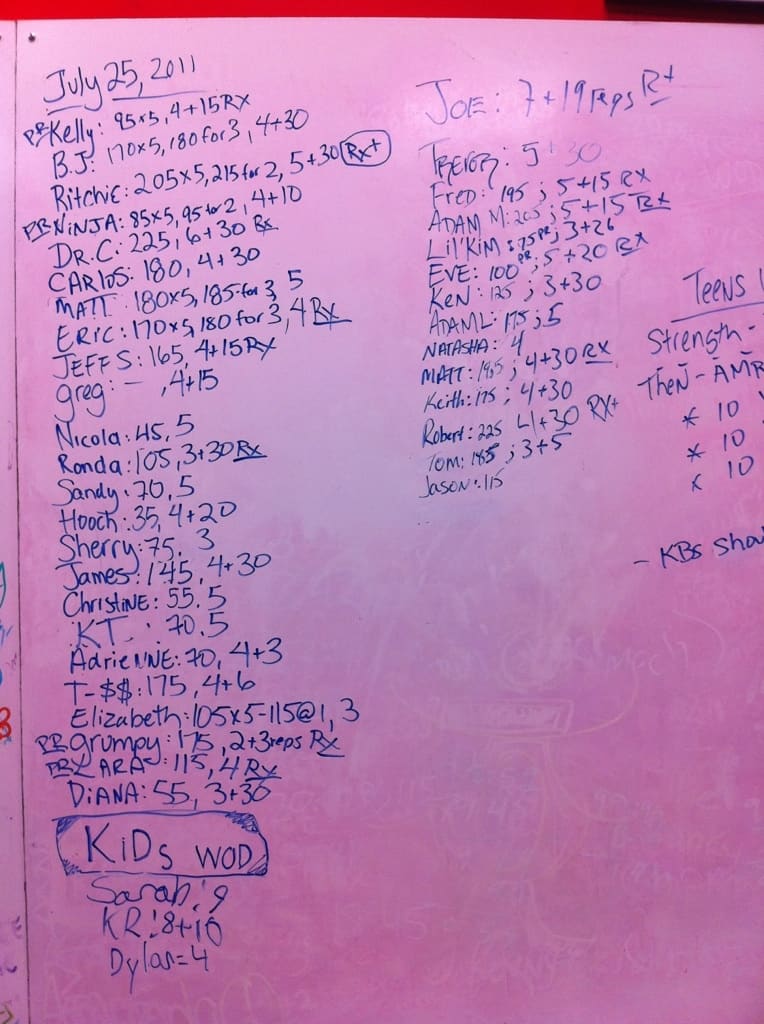 July 25, 2011
PR Kelly: 95x5, 4+15 RX
B.J.: 170x5, 180 for 3, 4+30
Ritchie: 205x5, 215 for 2, 5+30 Rx+
PR NINJA: 85x5, 95 for 2, 4+10
DR.C: 225, 6+30 Rx
CARLOS: 180, 4+30
MATT: 180x5, 185 for 3, 5
ERIC: 170x5, 180 for 3, 4 Rx
JEFF S: 165, 4+15 RX
greg: - , 4+15
Nicola: 45, 5
Ronda: 105, 3+30 Rx
Sandy: 70, 5
Hooch: 35, 4+20
Sherry: 75, 3
James: 145, 4+30
CHRISTINE: 55, 5
KT: 70, 5
AdrieNNE: 70, 4+3
T-$$: 175, 4+6
Elizabeth: 105x5-115@1, 3
PR grumpy: 175, 2+3reps Rx
PR LARA: 115, 4 Rx
DiANA: 55, 3+30
KiDs WOD
Sarah: 9
KR: 8+10
Dylan=4
JOE: 7+19 reps R+
TREVOR: 5+30
Fred: 195; 5+15 RX
ADAM M: 205; 5+15 RX
LiL'KIM: 75 PR; 3+26
EVE: 100 PR; 5+20 RX
KEN: 125; 3+30
ADAM L: 175; 5
NATASHA: 4
MATT: 195; 4+30 RX
Keith: 175; 4+30
Robert: 225 4+30 RX+
TOM: 185; 3+5
JASON: 115
TEENS
Strength-
THEN-AMR
* 10
* 10
* 10
- KBs shou